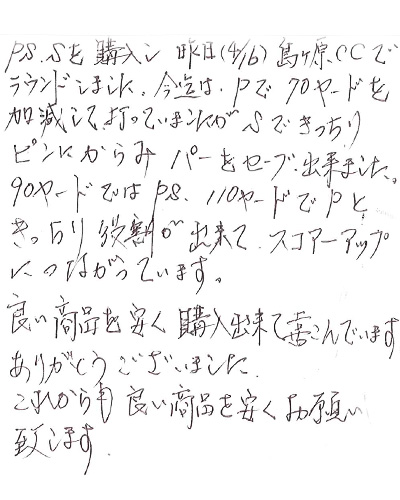 PS.Sを購入し 昨日(4/16)島ヶ原.CCで
ラウンドしました。今迄は、Pで70ヤードを
加減して打っていましたがSできっちり
ピンにからみパーをセーブ出来ました。
90ヤードではPS、110ヤードでPと
きっちり役割が出来て、スコアーアップ
につながっています。
良い商品を安く購入出来て喜こんでいます
ありがとうございました。
これからも良い商品を安くお願い
致します.